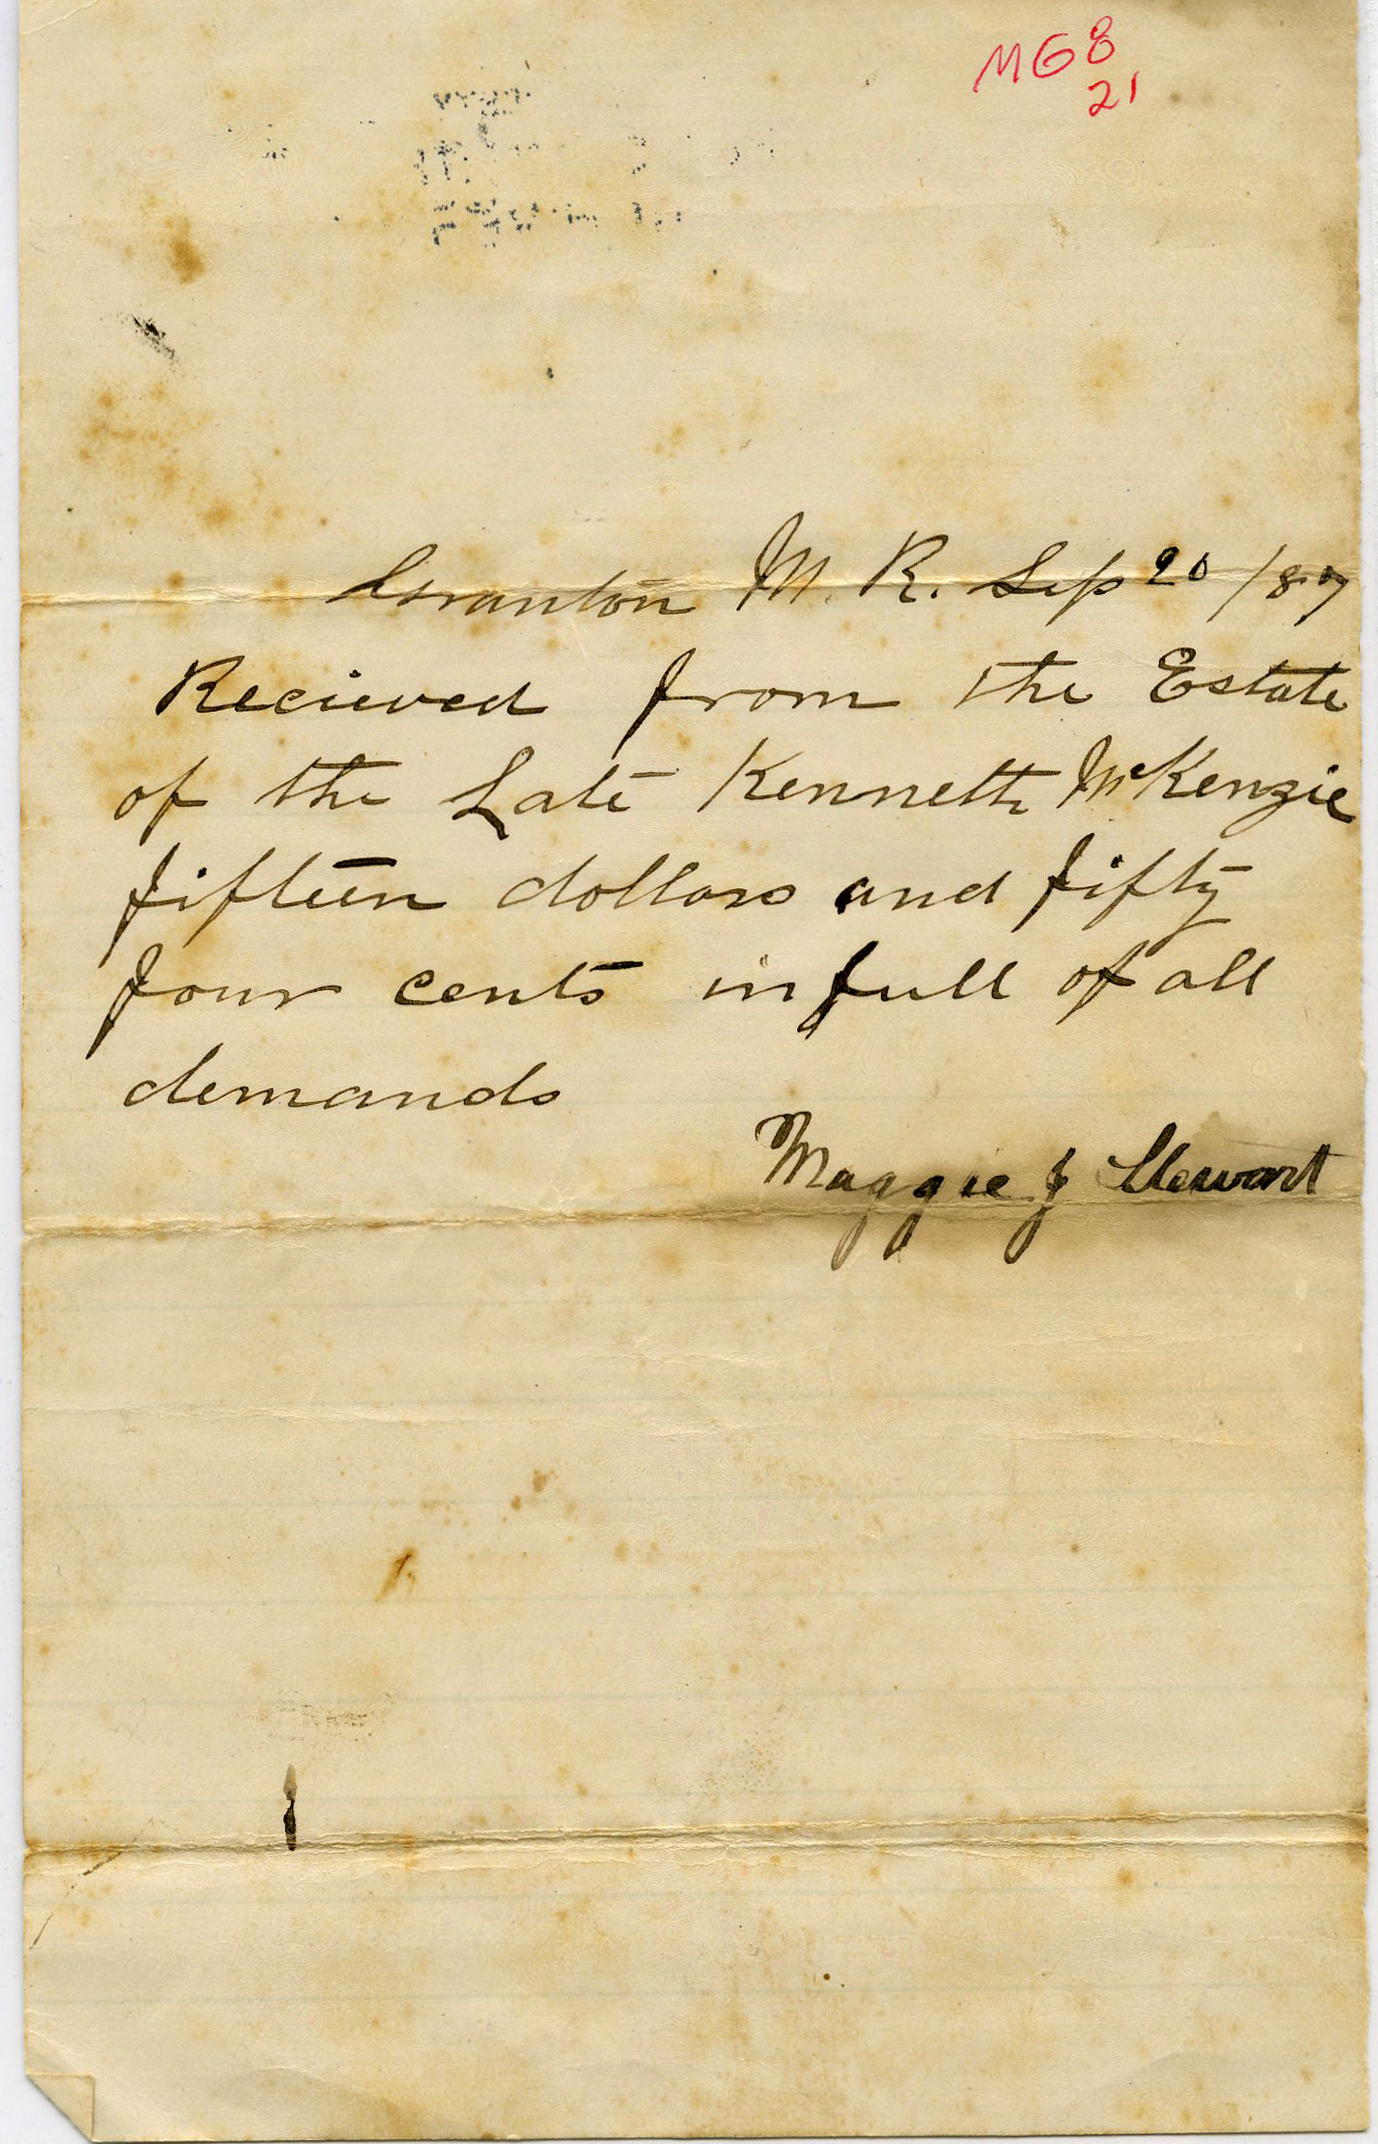 MG8
21
Granton M. R. Sep 20 /87
Recieved from the Estate
of the Late Kenneth McKenzie
fifteen dollars and fifty
four cents in full of all
demands
Maggie J Stewart